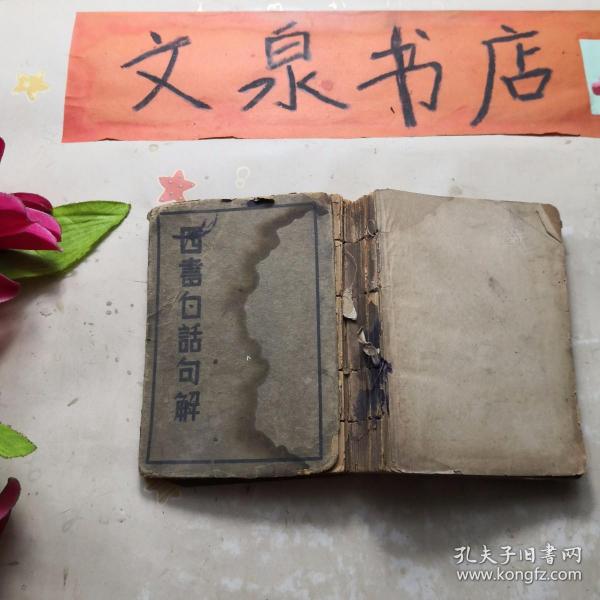 文泉书店
四書白話句解
孔夫子旧书网
www.kongfz.com